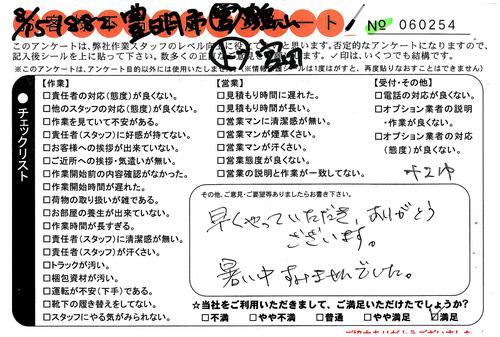 8/5 1882 豊明市
アンケート!
№ 060254
このアンケートは、弊社作業スタッフのレベル向
と思います。否定的なアンケートになりますので、
記入後シールを上に貼って下さい。数多くの正
願いします。✓印は、いくつでも結構です。
【作業】
□責任者の対応(態度)が良くない。
□他のスタッフの対応(態度)が良くない。
□作業を見ていて不安がある。
□責任者(スタッフ)に好感が持てない。
□お客様への挨拶が出来ていない。
□ご近所への挨拶・気遣いが無い。
□作業開始前の内容確認がなかった。
□作業開始時間が遅れた。
□荷物の取り扱いが雑である。
□お部屋の養生が出来ていない。
□作業時間が長すぎる。
□責任者(スタッフ)に清潔感が無い。
□責任者(スタッフ)が汗くさい。
□トラックが汚い。
□梱包資材が汚い。
□運転が不安(下手)である。
□靴下の履き替えをしてない。
□スタッフにやる気がみられない。
【営業】
□見積もり時間に遅れた。
□見積もり時間が長い。
□営業マンに清潔感が無い。
□営業マンが煙草くさい。
□営業マンが汗くさい。
□営業態度が良くない。
□営業の説明と作業が一致してない。
【受付・その他】
□電話の対応が良くない。
□オプション業者の説明
・作業が良くない。
□オプション業者の対応
(態度)が良くない。
●チェックリスト
その他、ご意見・ご要望等ありましたらお書き下さい。
早くやっていただき、ありがとう
ございます。
暑い中すみませんでした。
☆当社をご利用いただきまして、ご満足いただけたでしょうか?
□不満 □やや不満 □普通 □やや満足 ☑満足